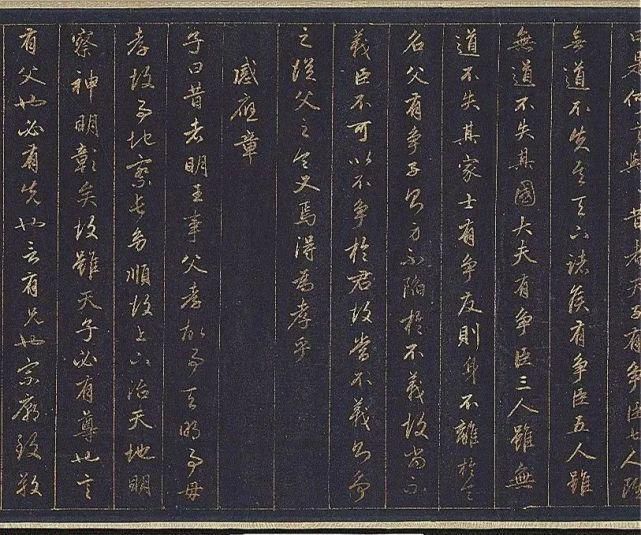 是何言與昔者天子有爭臣七人雖
無道不失其天下諸侯有爭臣五人雖
無道不失其國大夫有爭臣三人雖無
道不失其家士有爭友則身不離於令
名父有爭子則身不陷於不義故當不
義臣不可以不爭於君故當不義則爭
之從父之令又焉得為孝乎
感應章
子曰昔者明王事父孝故事天明事母
孝故事地察長幼順故上下治天地明
察神明彰矣故雖天子必有尊也言
有父也必有先也言有兄也宗廟致敬